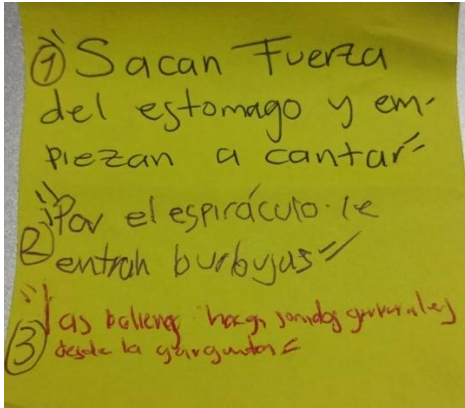 ① Sacan Fuerza
del estomago y em-
piezan a cantar
Por el espiráculo le
② entran burbujas
③ las ballenas hacen sonidos guturales
desde la garganta